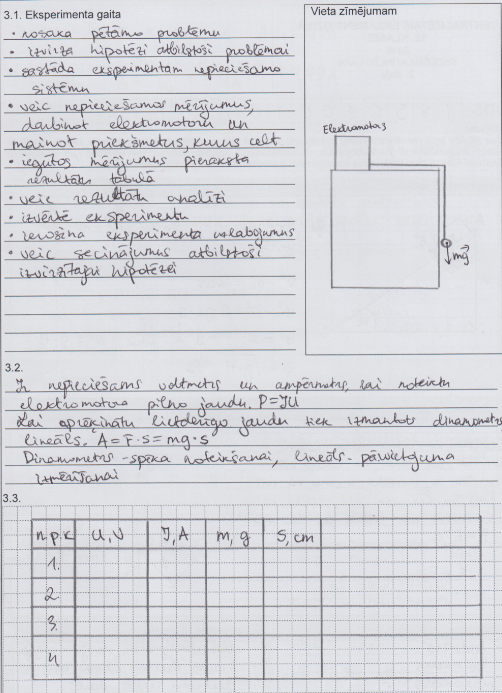 3.1. Eksperimenta gaita
• nosaka pētāmo problēmu
• izvirza hipotēzi atbilstoši problēmai
• sastāda eksperimentam nepieciešamo
sistēmu
• veic nepieciešamos mērījumus,
darbinot elektromotoru un
mainot priekšmetus, kurus celt
• iegūtos mērījumus pieraksta
rezultātu tabulā
• veic rezultātu analīzi
• izvērtē eksperimentu
• ierosina eksperimenta uzlabojumus
• veic secinājumus atbilstoši
izvirzītajai hipotēzei
Vieta zīmējumam
Elektromotors
mg
3.2.
Ir nepieciešams voltmetrs un ampērmetrs, lai noteiktu
elektromotora pilno jaudu. P=IU
Lai aprēķinātu lietderīgo jaudu tiek izmantots dinamometrs
lineāls. A=F·s=mg·s
Dinamometrs - spēka noteikšanai, lineāls - pārvietojuma
izmērīšanai
3.3.
n.p.k U,V I,A m,g S,cm
1.
2.
3.
4.